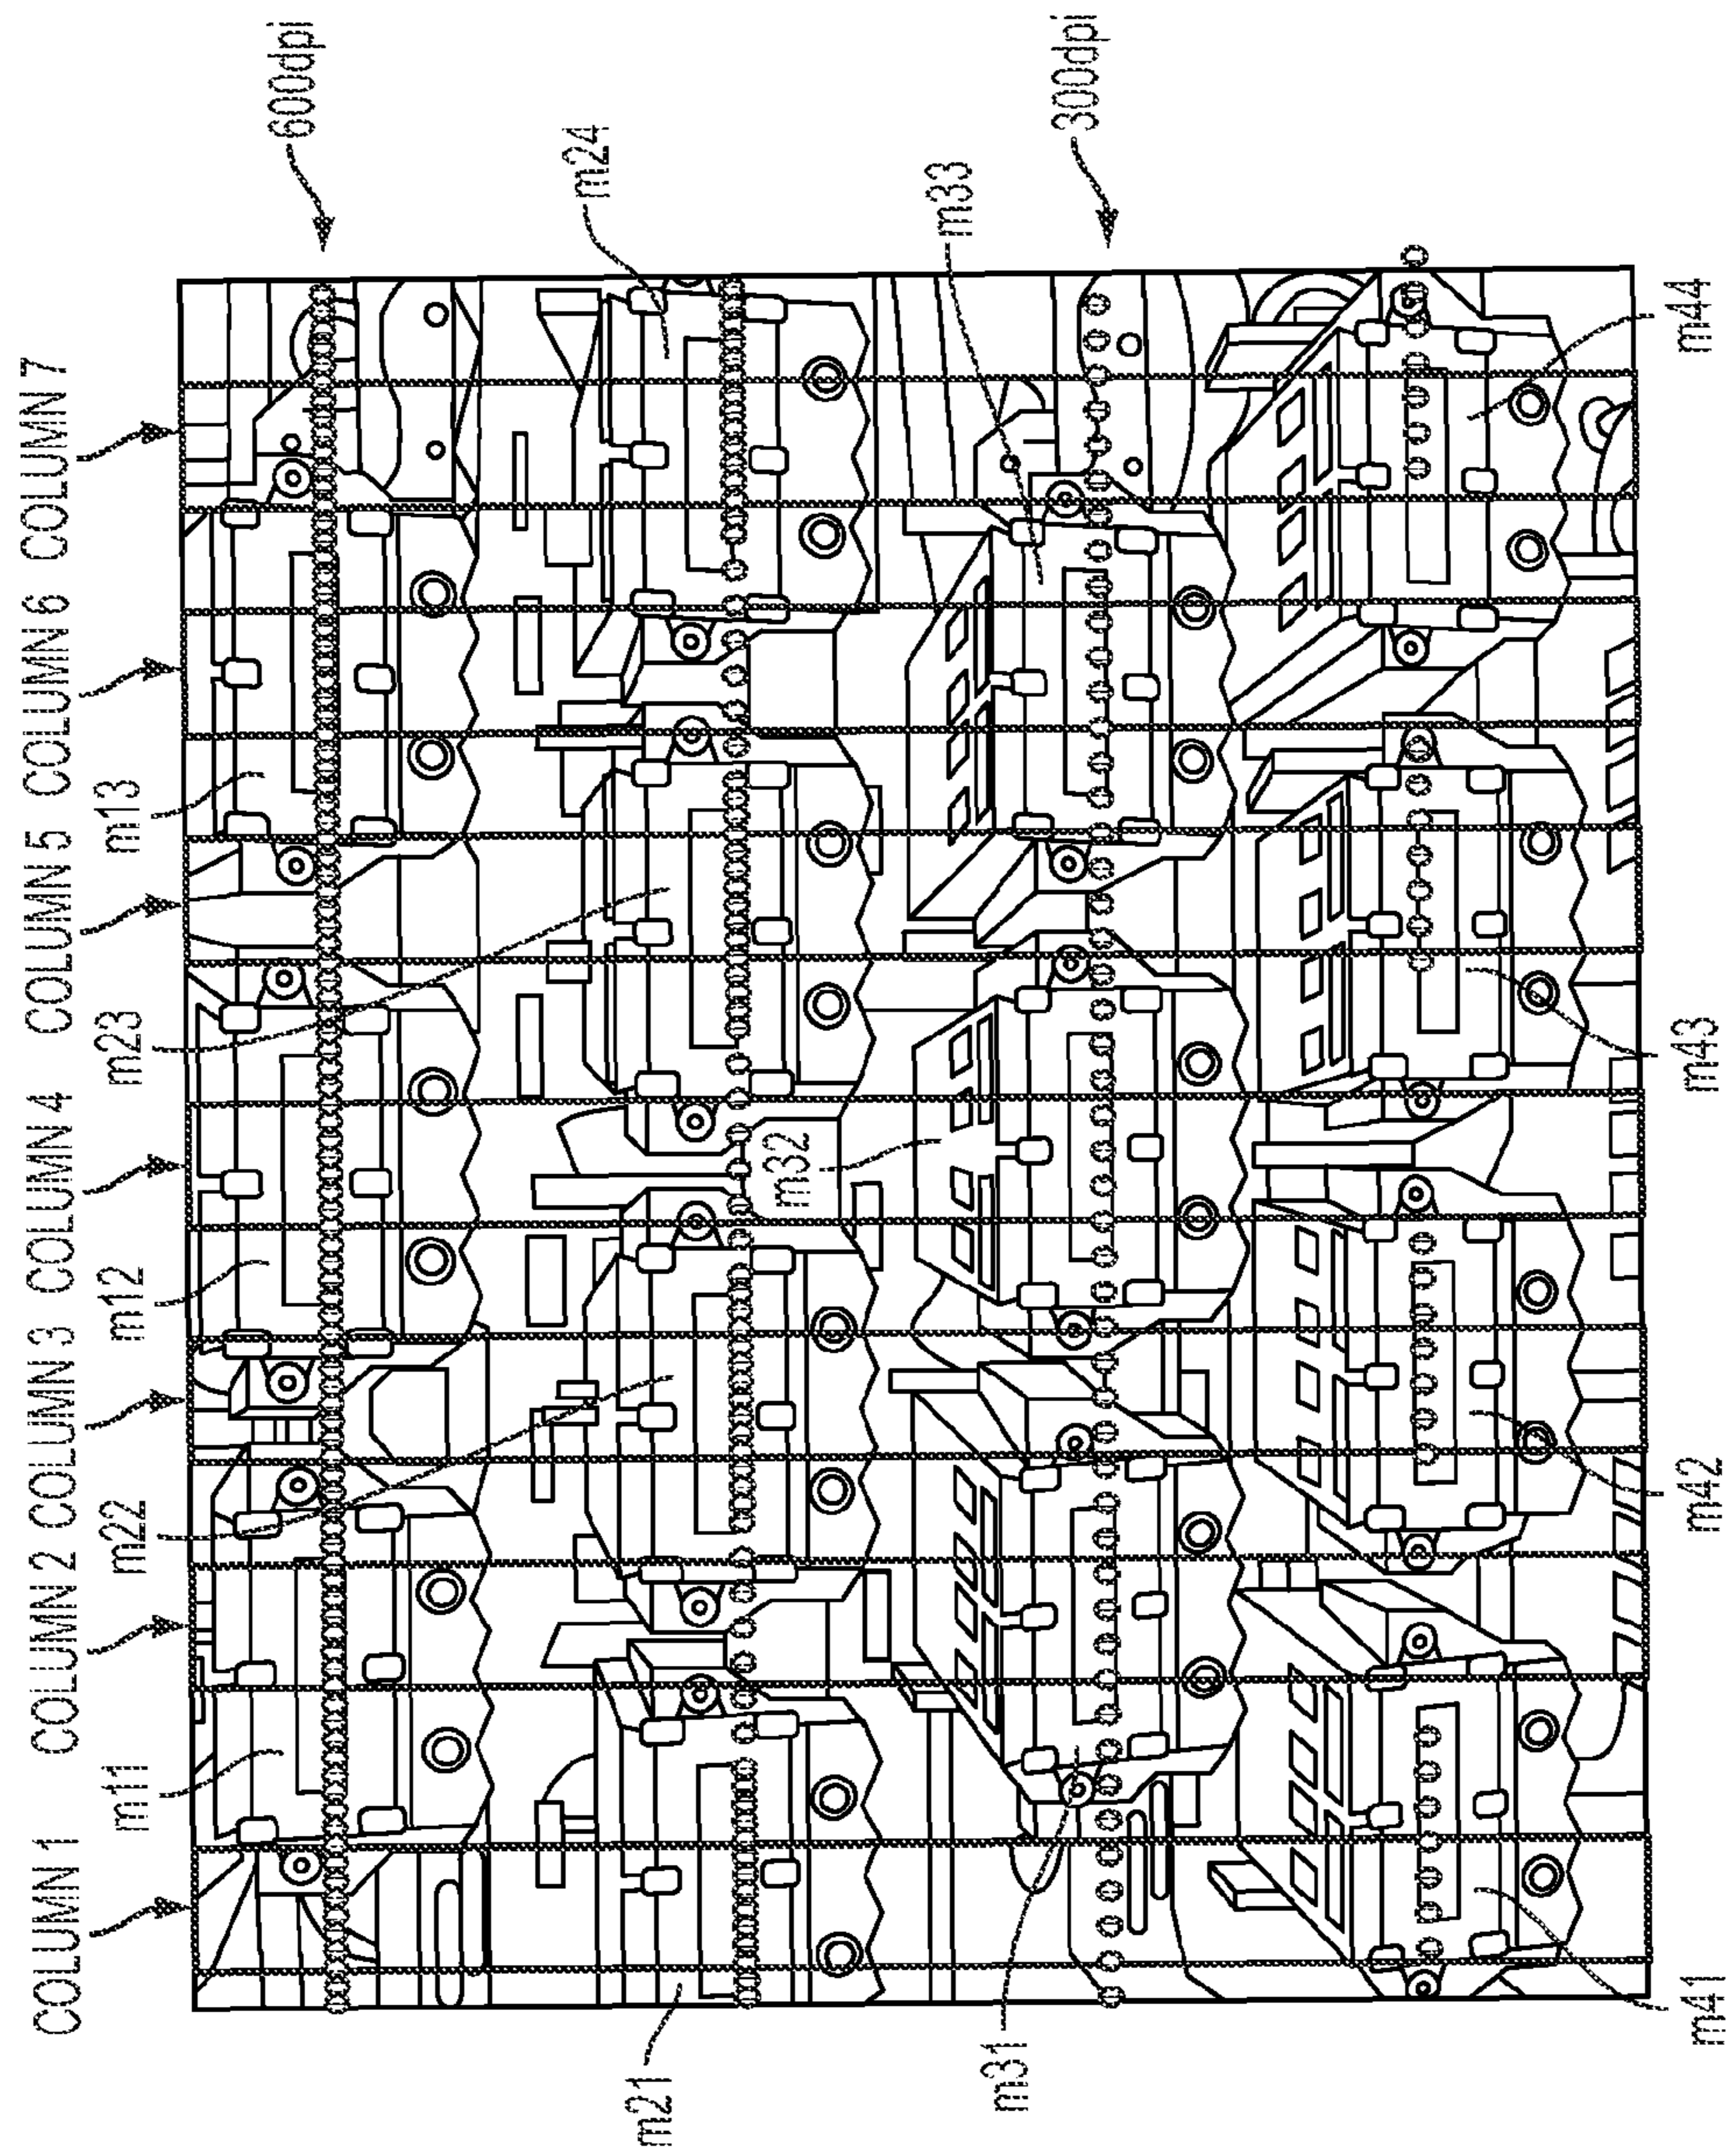 COLUMN 1 COLUMN 2 COLUMN 3 COLUMN 4 COLUMN 5 COLUMN 6 COLUMN 7
m11
m22
m12
m23
m13
600dpi
m21
m24
m32
m31
m33
300dpi
m41
m42
m43
m44